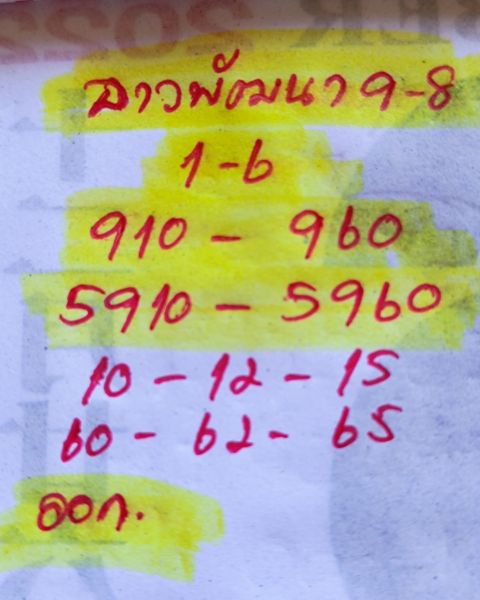 ลาวพัฒนา 9-8
1-6
910 - 960
5910 - 5960
10 - 12 - 15
60 - 62 - 65
ออก.